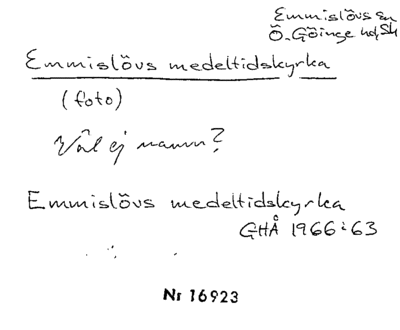 Emmislövs sn
Ö. Göinge hd, Sk
Emmislövs medeltidskyrka
(foto)
Väl ej namn?
Emmislövs medeltidskyrka
GHÅ 1966:63
Nr 16923